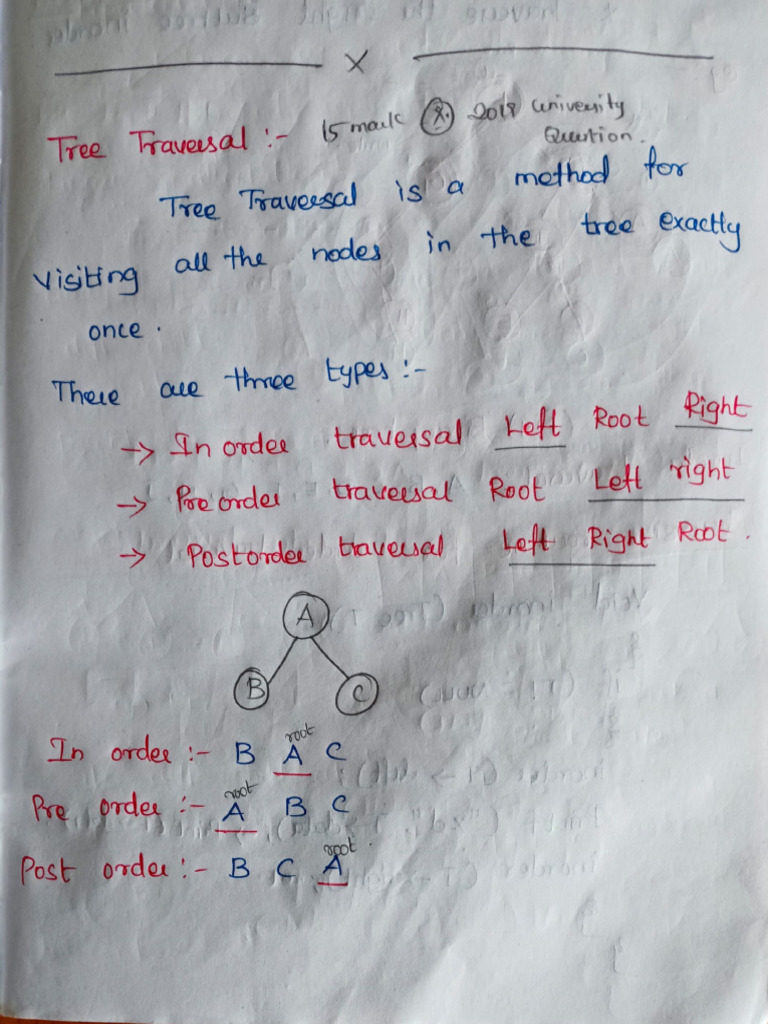 x
Tree Traversal :- 15 mark 2019 university
Question.
Tree Traversal is a method for
visiting all the nodes in the tree exactly
once.
There are three types :-
→ In order traversal Left Root Right
→ Pre order traversal Root Left right
→ Postorder traversal Left Right Root.
A
B C
root
In order :- B A C
root
Pre order :- A B C
root.
Post order :- B C A